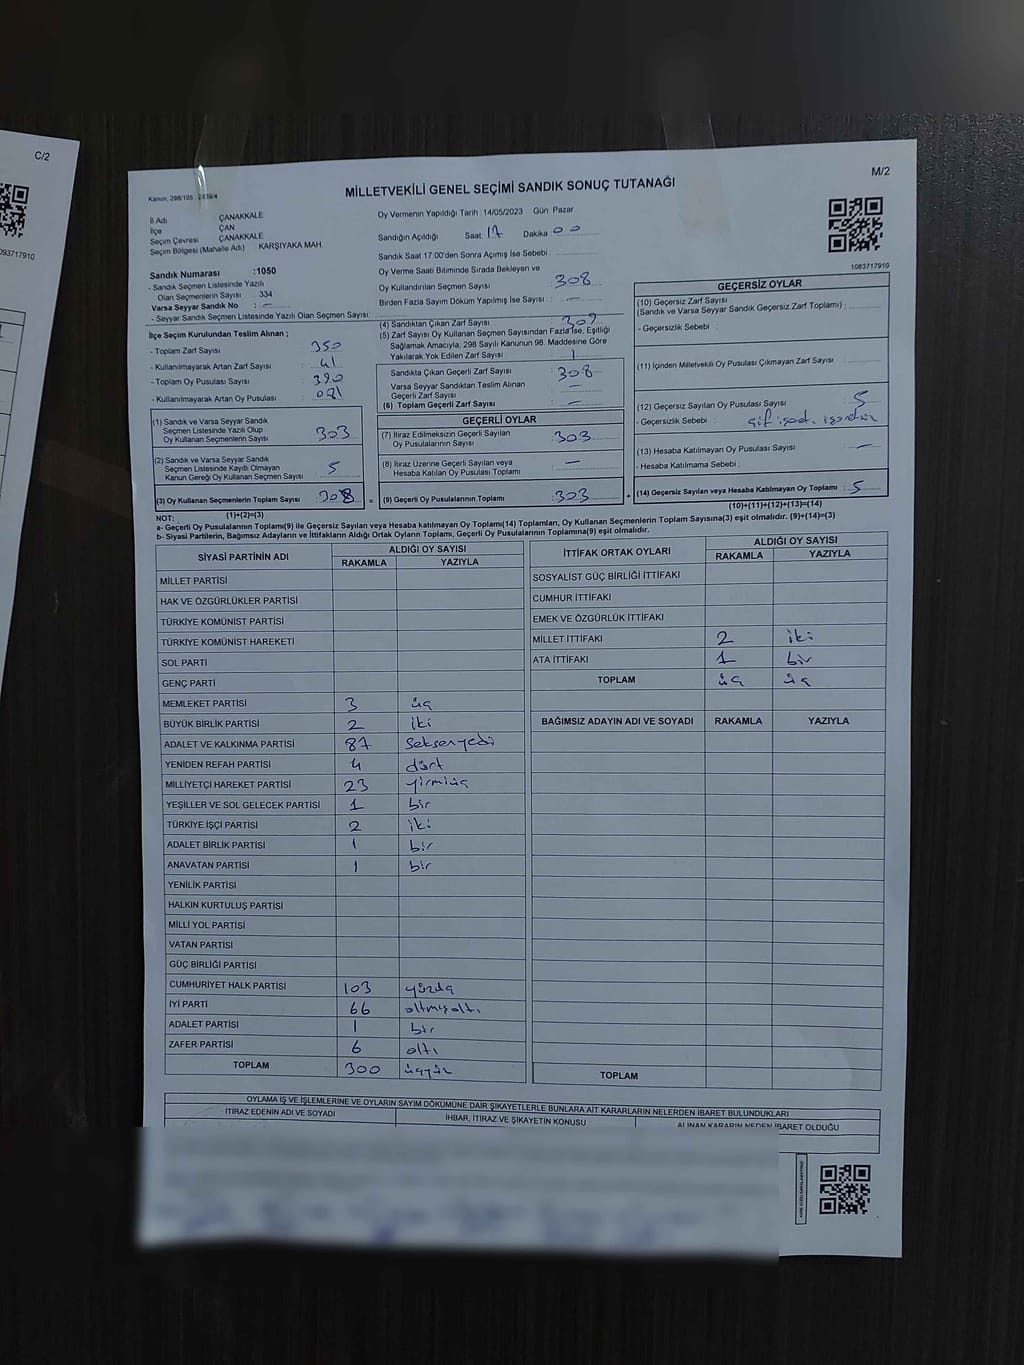 C/2
093717910
M/2
MİLLETVEKİLİ GENEL SEÇİMİ SANDIK SONUÇ TUTANAĞI
İl Adı ÇANAKKALE
İlçe ÇAN
Seçim Çevresi ÇANAKKALE
Seçim Bölgesi (Mahalle Adı) KARŞIYAKA MAH.
Sandık Numarası :1050
- Sandık Seçmen Listesinde Yazılı
Olan Seçmenlerin Sayısı 334
Varsa Seyyar Sandık No : -
- Seyyar Sandık Seçmen Listesinde Yazılı Olan Seçmen Sayısı:
Oy Vermenin Yapıldığı Tarih : 14/05/2023 Gün: Pazar
Sandığın Açıldığı Saat: 17 Dakika: 00
Sandık Saat 17.00'den Sonra Açımış İse Sebebi :
Oy Verme Saati Bitiminde Sırada Bekleyen ve
Oy Kullandırılan Seçmen Sayısı : 308
Birden Fazla Sayım Döküm Yapılmış İse Sayısı : -
1083717910
İlçe Seçim Kurulundan Teslim Alınan ;
- Toplam Zarf Sayısı : 350
- Kullanılmayarak Artan Zarf Sayısı : 41
- Toplam Oy Pusulası Sayısı : 390
- Kullanılmayarak Artan Oy Pusulası : 081
(1) Sandık ve Varsa Seyyar Sandık
Seçmen Listesinde Yazılı Olup
Oy Kullanan Seçmenlerin Sayısı : 303
(2) Sandık ve Varsa Seyyar Sandık
Seçmen Listesinde Kayıtlı Olmayan
Kanun Gereği Oy Kullanan Seçmen Sayısı : 5
(3) Oy Kullanan Seçmenlerin Toplam Sayısı : 308 =
(1)+(2)=(3)
(4) Sandıktan Çıkan Zarf Sayısı : 309
(5) Zarf Sayısı Oy Kullanan Seçmen Sayısından Fazla İse, Eşitliği
Sağlamak Amacıyla; 298 Sayılı Kanunun 98. Maddesine Göre
Yakılarak Yok Edilen Zarf Sayısı : 1
Sandıkta Çıkan Geçerli Zarf Sayısı : 308
Varsa Seyyar Sandıktan Teslim Alınan
Geçerli Zarf Sayısı : -
(6) Toplam Geçerli Zarf Sayısı : -
GEÇERLİ OYLAR
(7) İtiraz Edilmeksizin Geçerli Sayılan
Oy Pusulalarının Sayısı : 303
(8) İtiraz Üzerine Geçerli Sayılan veya
Hesaba Katılan Oy Pusulası Toplamı : -
(9) Geçerli Oy Pusulalarının Toplamı : 303 +
GEÇERSİZ OYLAR
(10) Geçersiz Zarf Sayısı
(Sandık ve Varsa Seyyar Sandık Geçersiz Zarf Toplamı) :
- Geçersizlik Sebebi :
(11) İçinden Milletvekili Oy Pusulası Çıkmayan Zarf Sayısı :
(12) Geçersiz Sayılan Oy Pusulası Sayısı : 5
- Geçersizlik Sebebi :
(13) Hesaba Katılmayan Oy Pusulası Sayısı : -
- Hesaba Katılmama Sebebi :
(14) Geçersiz Sayılan veya Hesaba Katılmayan Oy Toplamı : 5
(10)+(11)+(12)+(13)=(14)
NOT:
a- Geçerli Oy Pusulalarının Toplamı(9) ile Geçersiz Sayılan veya Hesaba katılmayan Oy Toplamı(14) Toplamları, Oy Kullanan Seçmenlerin Toplam Sayısına(3) eşit olmalıdır. (9)+(14)=(3)
b- Siyasi Partilerin, Bağımsız Adayların ve İttifakların Aldığı Ortak Oyların Toplamı, Geçerli Oy Pusulalarının Toplamına(9) eşit olmalıdır.
SİYASİ PARTİNİN ADI ALDIĞI OY SAYISI
RAKAMLA YAZIYLA
MİLLET PARTİSİ
HAK VE ÖZGÜRLÜKLER PARTİSİ
TÜRKİYE KOMÜNİST PARTİSİ
TÜRKİYE KOMÜNİST HAREKETİ
SOL PARTİ
GENÇ PARTİ
MEMLEKET PARTİSİ 3 üç
BÜYÜK BİRLİK PARTİSİ 2 iki
ADALET VE KALKINMA PARTİSİ 87 seksenyedi
YENİDEN REFAH PARTİSİ 4 dört
MİLLİYETÇİ HAREKET PARTİSİ 23 yirmiüç
YEŞİLLER VE SOL GELECEK PARTİSİ 1 bir
TÜRKİYE İŞÇİ PARTİSİ 2 iki
ADALET BİRLİK PARTİSİ 1 bir
ANAVATAN PARTİSİ 1 bir
YENİLİK PARTİSİ
HALKIN KURTULUŞ PARTİSİ
MİLLİ YOL PARTİSİ
VATAN PARTİSİ
GÜÇ BİRLİĞİ PARTİSİ
CUMHURİYET HALK PARTİSİ 103 yüzüç
İYİ PARTİ 66 altmışaltı
ADALET PARTİSİ 1 bir
ZAFER PARTİSİ 6 altı
TOPLAM 300 üçyüz
İTTİFAK ORTAK OYLARI ALDIĞI OY SAYISI
RAKAMLA YAZIYLA
SOSYALİST GÜÇ BİRLİĞİ İTTİFAKI
CUMHUR İTTİFAKI
EMEK VE ÖZGÜRLÜK İTTİFAKI
MİLLET İTTİFAKI 2 iki
ATA İTTİFAKI 1 bir
TOPLAM üç üç
BAĞIMSIZ ADAYIN ADI VE SOYADI RAKAMLA YAZIYLA
TOPLAM
OYLAMA İŞ VE İŞLEMLERİNE VE OYLARIN SAYIM DÖKÜMÜNE DAİR ŞİKAYETLERLE BUNLARA AİT KARARLARIN NELERDEN İBARET BULUNDUKLARI
İTİRAZ EDENİN ADI VE SOYADI İHBAR, İTİRAZ VE ŞİKAYETİN KONUSU ALINAN KARARIN NEDEN İBARET OLDUĞU